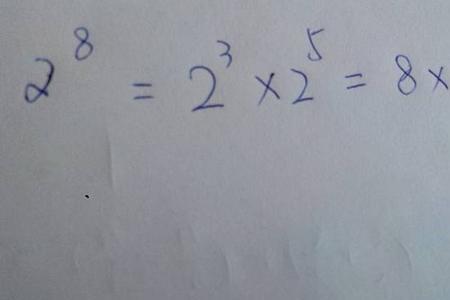 2⁸ = 2³ × 2⁵ = 8 ×